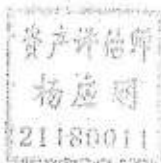 资产评估师
杨应明
21180011